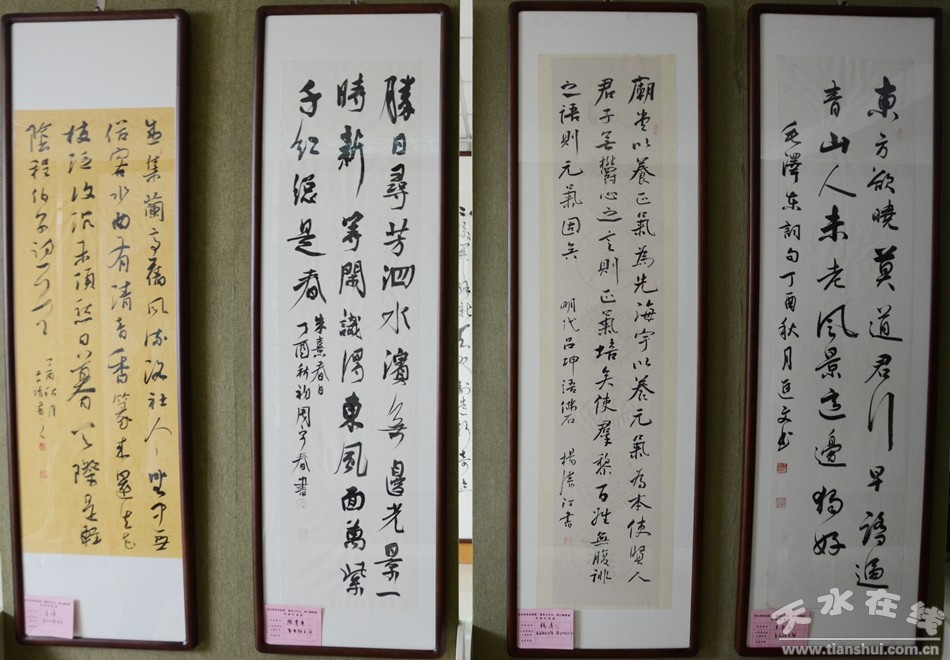 盛集蘭亭舊風流洛社今坐中無
俗客水曲有清音香篆來還去花
枝泛復沉未須愁日暮天際是輕
陰程伯子詩一首
丁酉秋月
勝日尋芳泗水濱無邊光景一
時新等閑識得東風面萬紫
千紅總是春
朱熹春日
丁酉秋初周春書
廟堂以養正氣為先海宇以養元氣為本使賢人
君子無鬱心之言則正氣培矣使羣黎百姓無腹誹
之語則元氣固矣 明代呂坤語 楊清汀書
東方欲曉莫道君行早踏遍
青山人未老風景這邊獨好
毛澤東詞句丁酉秋月文書
天水在线
www.tianshui.com.cn